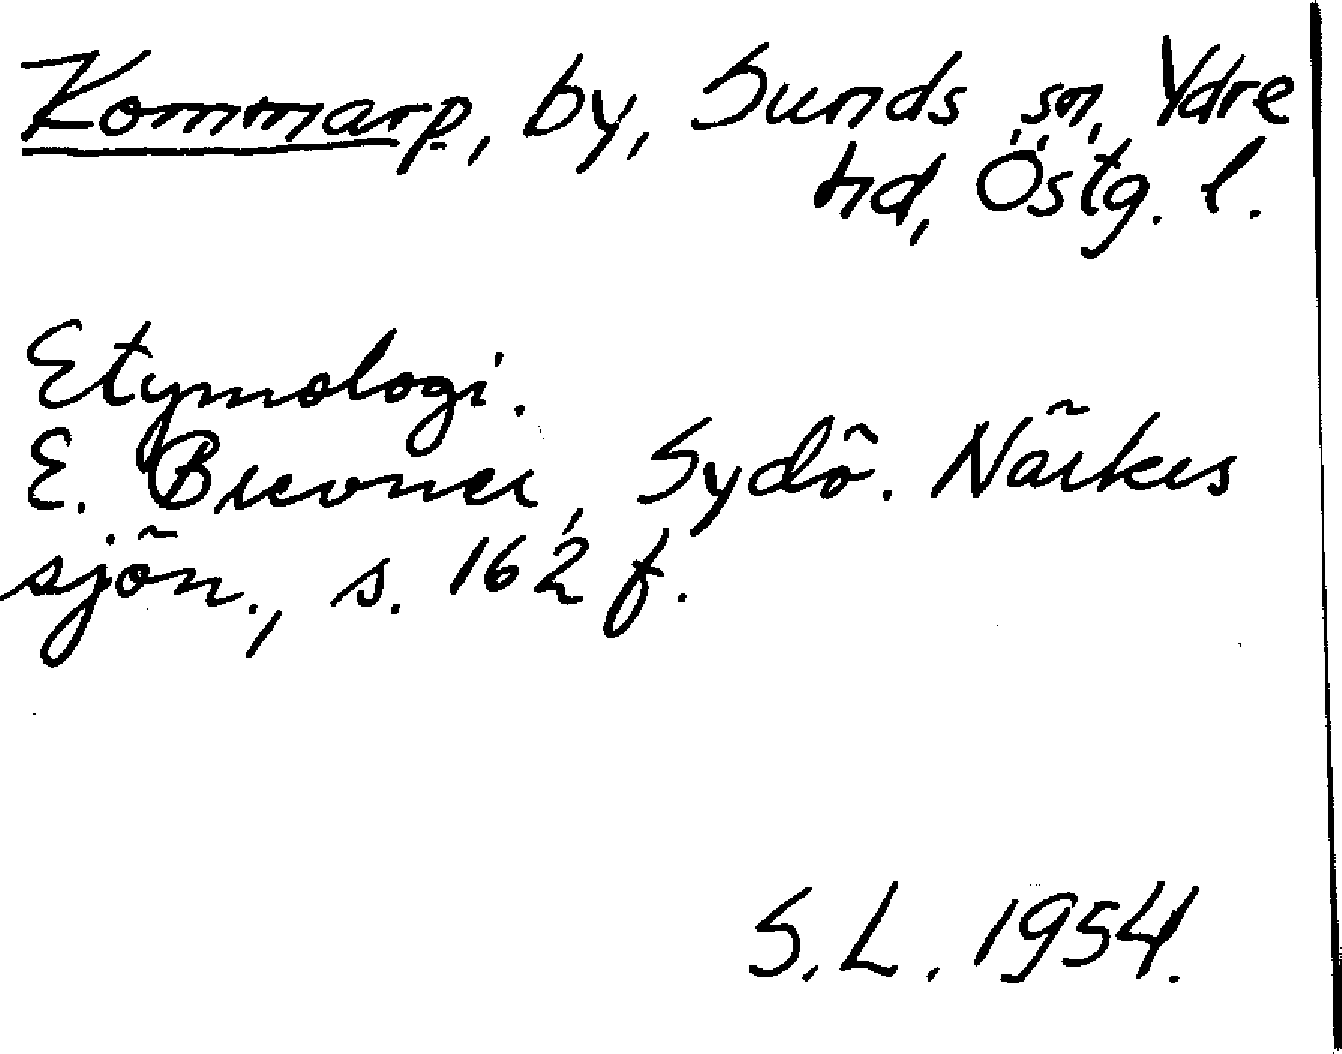 Kommarp, by, Sunds sn, Ydre
hd, Östg. l.
Etymologi.
E. Brevner, Sydö. Närkes
sjön., s. 162 f.
S. L. 1954.